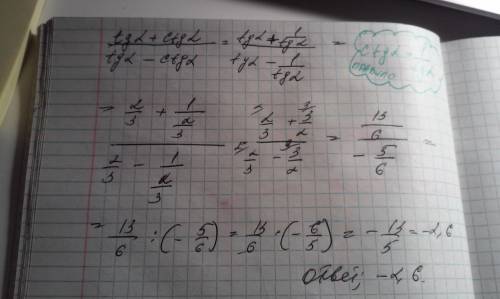 (tgα + ctgα)/(tgα − ctgα) = (tgα + 1/tgα)/(tgα − 1/tgα) =
= (2/3 + 1/(2/3))/(2/3 − 1/(2/3)) = (2/3 + 3/2)/(2/3 − 3/2) = (13/6)/(− 5/6) =
= 13/6 : (− 5/6) = 13/6 · (− 6/5) = − 13/5 = −2,6
Ответ; −2,6.